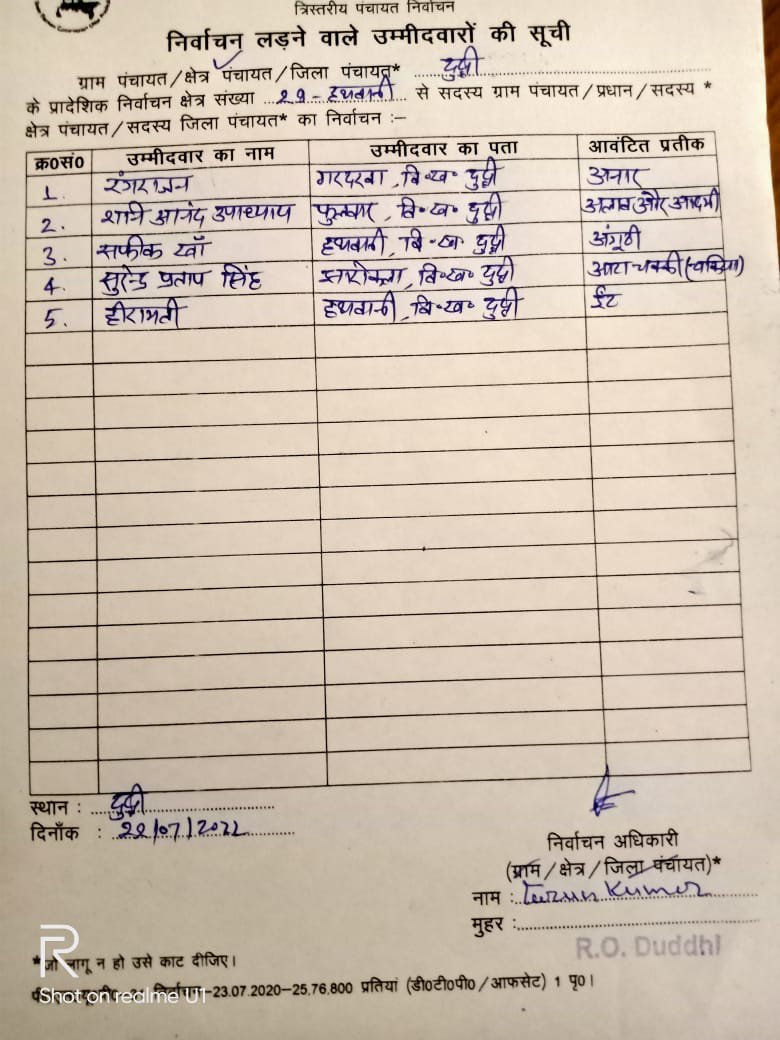 त्रिस्तरीय पंचायत निर्वाचन
निर्वाचन लड़ने वाले उम्मीदवारों की सूची
ग्राम पंचायत/क्षेत्र पंचायत/जिला पंचायत* दुद्धी
के प्रादेशिक निर्वाचन क्षेत्र संख्या 29-हथवानी से सदस्य ग्राम पंचायत/प्रधान/सदस्य *
क्षेत्र पंचायत/सदस्य जिला पंचायत* का निर्वाचन :–
क्र0सं0 उम्मीदवार का नाम उम्मीदवार का पता आवंटित प्रतीक
1. वि०ख० दुद्धी अनार
2. शान्ति आनंद उपाध्याय फुलवार, वि०ख० दुद्धी
3. सफीक खाँ हथवानी, वि०ख० दुद्धी अंगूठी
4. सुरेन्द्र प्रताप सिंह वि०ख० दुद्धी आटा चक्की
5. हीरामती हथवानी, वि०ख० दुद्धी ईंट
स्थान : दुद्धी
दिनाँक : 22/07/2022
निर्वाचन अधिकारी
(ग्राम/क्षेत्र/जिला पंचायत)*
नाम : Kumar
मुहर :
R.O. Duddhi
*जो लागू न हो उसे काट दीजिए।
निर्वाचन–23.07.2020–25,76,800 प्रतियां (डी0टी0पी0/आफसेट) 1 पृ0।
R
Shot on realme U1